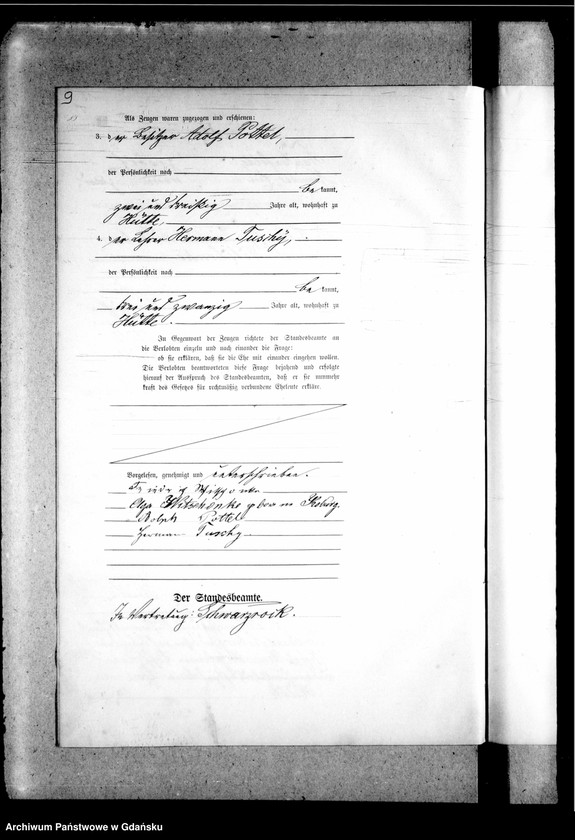 9
Als Zeugen waren zugezogen und erschienen:
3. der Besitzer Adolf Pottel,
der Persönlichkeit nach
be kannt,
zwei und dreißig Jahre alt, wohnhaft zu
Hütte,
4. der Lehrer Hermann Tuschy,
der Persönlichkeit nach
be kannt,
drei und zwanzig Jahre alt, wohnhaft zu
Hütte.
In Gegenwart der Zeugen richtete der Standesbeamte an
die Verlobten einzeln und nach einander die Frage:
ob sie erklären, daß sie die Ehe mit einander eingehen wollen.
Die Verlobten beantworteten diese Frage bejahend und erfolgte
hierauf der Ausspruch des Standesbeamten, daß er sie nunmehr
kraft des Gesetzes für rechtmäßig verbundene Eheleute erkläre.
Vorgelesen, genehmigt und unterschrieben.
geboren
Adolph Pottel
Herman Tuschy
Der Standesbeamte.
In Vertretung: Schwarzrock.
Archiwum Państwowe w Gdańsku